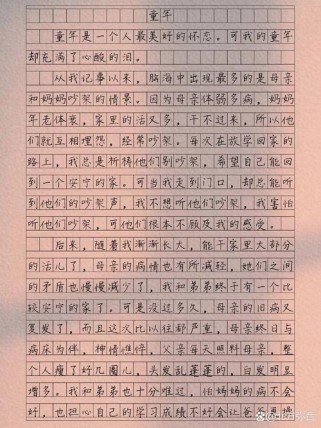 童年
童年是一个人最美好的怀恋。可我的童年
却充满了心酸的泪。
从我记事以来，脑海中出现最多的是母亲
和奶奶吵架的情景。因为母亲体弱多病，奶奶
年老体衰，家里的活又多，干不过来，所以他
们就互相埋怨，经常吵架。每次在放学回家的
路上，我总是祈祷他们别吵架，希望自己能回
到一个安宁的家。可当我走到门口，却总能听
到他们的吵架声，我不想听他们吵架，我害怕
听他们吵架，可他们根本不顾及我的感受。
后来，随着我渐渐长大，能干家里大部分
的活儿了，母亲的病情也有所减轻，她们之间
的矛盾也慢慢减少了，我和弟弟终于有一个比
较安宁的家了。可是没过多久，母亲的旧病又
复发了，而且这次比以往都严重，母亲终日与
病床为伴，神情憔悴，父亲每天照料母亲，整
个人瘦了好几圈儿，头发乱蓬蓬的，白发明显
增多。我和弟弟也十分难过，怕妈妈的病不会
好，也担心自己的学习成绩不好会让爸爸更操